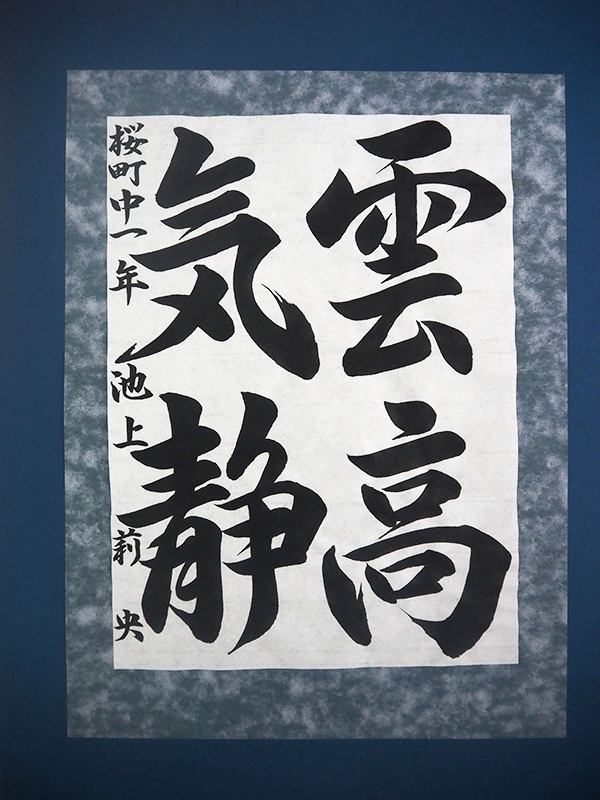 雲高
気静
桜町中一年 池上 莉央